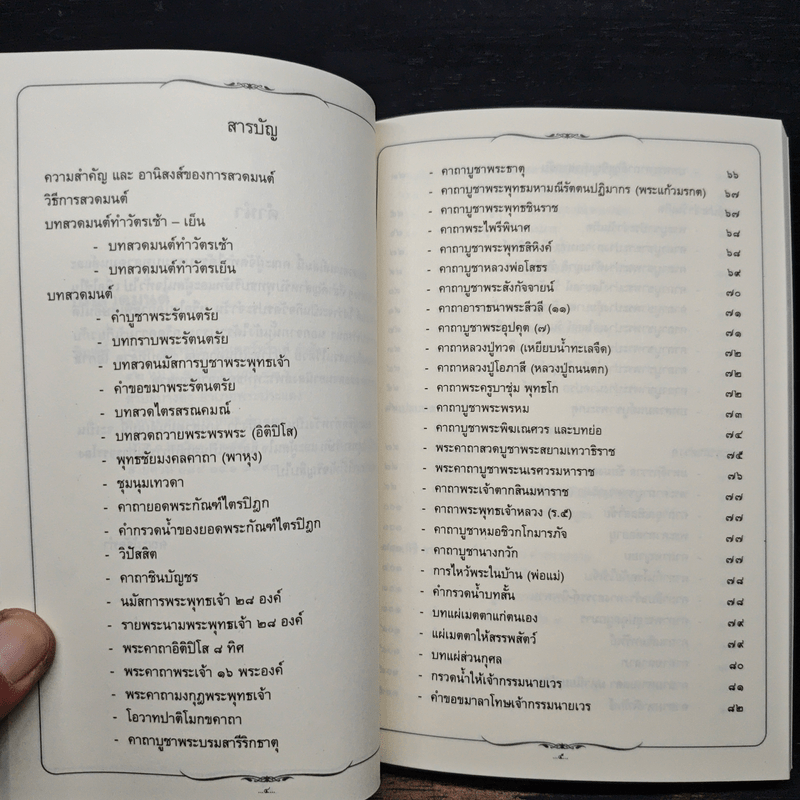 สารบัญ
ความสำคัญ และ อานิสงส์ของการสวดมนต์
วิธีการสวดมนต์
บทสวดมนต์ทำวัตรเช้า – เย็น
- บทสวดมนต์ทำวัตรเช้า
- บทสวดมนต์ทำวัตรเย็น
บทสวดมนต์
- คำบูชาพระรัตนตรัย
- บทกราบพระรัตนตรัย
- บทสวดนมัสการบูชาพระพุทธเจ้า
- คำขอขมาพระรัตนตรัย
- บทสวดไตรสรณคมณ์
- บทสวดถวายพระพรพระ (อิติปิโส)
- พุทธชัยมงคลคาถา (พาหุง)
- ชุมนุมเทวดา
- คาถายอดพระกัณฑ์ไตรปิฎก
- คำกรวดน้ำของยอดพระกัณฑ์ไตรปิฎก
- วิปัสสิต
- คาถาชินบัญชร
- นมัสการพระพุทธเจ้า ๒๘ องค์
- รายพระนามพระพุทธเจ้า ๒๘ องค์
- พระคาถาอิติปิโส ๘ ทิศ
- พระคาถาพระเจ้า ๑๖ พระองค์
- พระคาถามงกุฎพระพุทธเจ้า
- โอวาทปาติโมกขคาถา
- คาถาบูชาพระบรมสารีริกธาตุ
๔
- คาถาบูชาพระธาตุ ๖๖
- คาถาบูชาพระพุทธมหามณีรัตตนปฏิมากร (พระแก้วมรกต) ๖๗
- คาถาบูชาพระพุทธชินราช ๖๗
- คาถาพระไพรีพินาศ ๖๘
- คาถาบูชาพระพุทธสิหิงค์ ๖๘
- คาถาบูชาหลวงพ่อโสธร ๖๙
- คาถาบูชาพระสังกัจจายน์ ๗๐
- คาถาอาราธนาพระสีวลี (๑๑) ๗๑
- คาถาบูชาพระอุปคุต (๗) ๗๑
- คาถาหลวงปู่ทวด (เหยียบน้ำทะเลจืด) ๗๒
- คาถาหลวงปู่โอภาสี (หลวงปู่ถนนตก) ๗๒
- คาถาพระครูบาชุ่ม พุทธโก ๗๒
- คาถาบูชาพระพรหม ๗๓
- คาถาบูชาพระพิฆเณศวร และบทย่อ ๗๔
- พระคาถาสวดบูชาพระสยามเทวาธิราช ๗๕
- พระคาถาบูชาพระนเรศวรมหาราช ๗๖
- คาถาพระเจ้าตากสินมหาราช ๗๗
- คาถาพระพุทธเจ้าหลวง (ร.๕) ๗๗
- คาถาบูชาหมอชิวกโกมารภัจ ๗๗
- คาถาบูชานางกวัก ๗๗
- การไหว้พระในบ้าน (พ่อแม่) ๗๘
- คำกรวดน้ำบทสั้น ๗๘
- บทแผ่เมตตาแก่ตนเอง ๗๙
- แผ่เมตตาให้สรรพสัตว์ ๗๙
- บทแผ่ส่วนกุศล ๘๐
- กรวดน้ำให้เจ้ากรรมนายเวร ๘๑
- คำขอขมาลาโทษเจ้ากรรมนายเวร ๘๒
๕